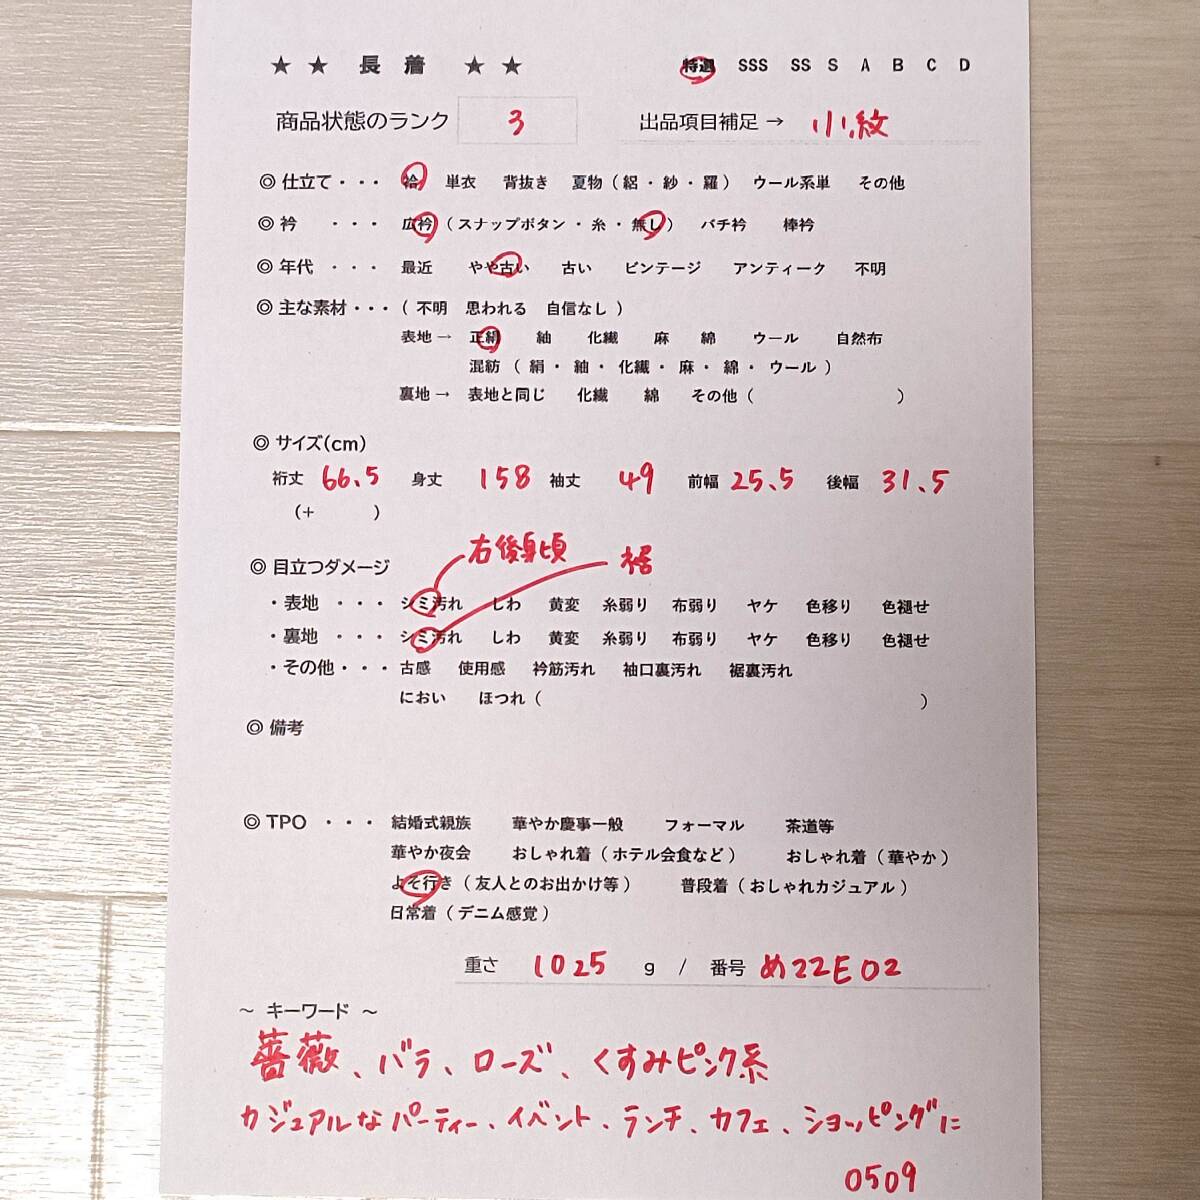 ★ ★ 長 着 ★ ★ 特選 SSS SS S A B C D
商品状態のランク 3 出品項目補足 → 小紋
◎ 仕立て・・・ 袷 単衣 背抜き 夏物 ( 絽 ・ 紗 ・ 羅 ) ウール系単 その他
◎ 衿 ・・・ 広衿 ( スナップボタン ・ 糸 ・ 無し ) バチ衿 棒衿
◎ 年代 ・・・ 最近 やや古い 古い ビンテージ アンティーク 不明
◎ 主な素材・・・ ( 不明 思われる 自信なし )
表地 → 正絹 紬 化繊 麻 綿 ウール 自然布
混紡 ( 絹 ・ 紬 ・ 化繊 ・ 麻 ・ 綿 ・ ウール )
裏地 → 表地と同じ 化繊 綿 その他 ( )
◎ サイズ(cm)
裄丈 66.5 身丈 158 袖丈 49 前幅 25.5 後幅 31.5
(+ )
右後身頃 裾
◎ 目立つダメージ
・表地 ・・・ シミ汚れ しわ 黄変 糸弱り 布弱り ヤケ 色移り 色褪せ
・裏地 ・・・ シミ汚れ しわ 黄変 糸弱り 布弱り ヤケ 色移り 色褪せ
・その他・・・ 古感 使用感 衿筋汚れ 袖口裏汚れ 裾裏汚れ
におい ほつれ ( )
◎ 備考
◎ TPO ・・・ 結婚式親族 華やか慶事一般 フォーマル 茶道等
華やか夜会 おしゃれ着 ( ホテル会食など ) おしゃれ着 ( 華やか )
よそ行き ( 友人とのお出かけ等 ) 普段着 ( おしゃれカジュアル )
日常着 ( デニム感覚 )
重さ 1025 g / 番号 め22E02
~ キーワード ~
薔薇、バラ、ローズ、くすみピンク系
カジュアルなパーティー、イベント、ランチ、カフェ、ショッピングに
0509